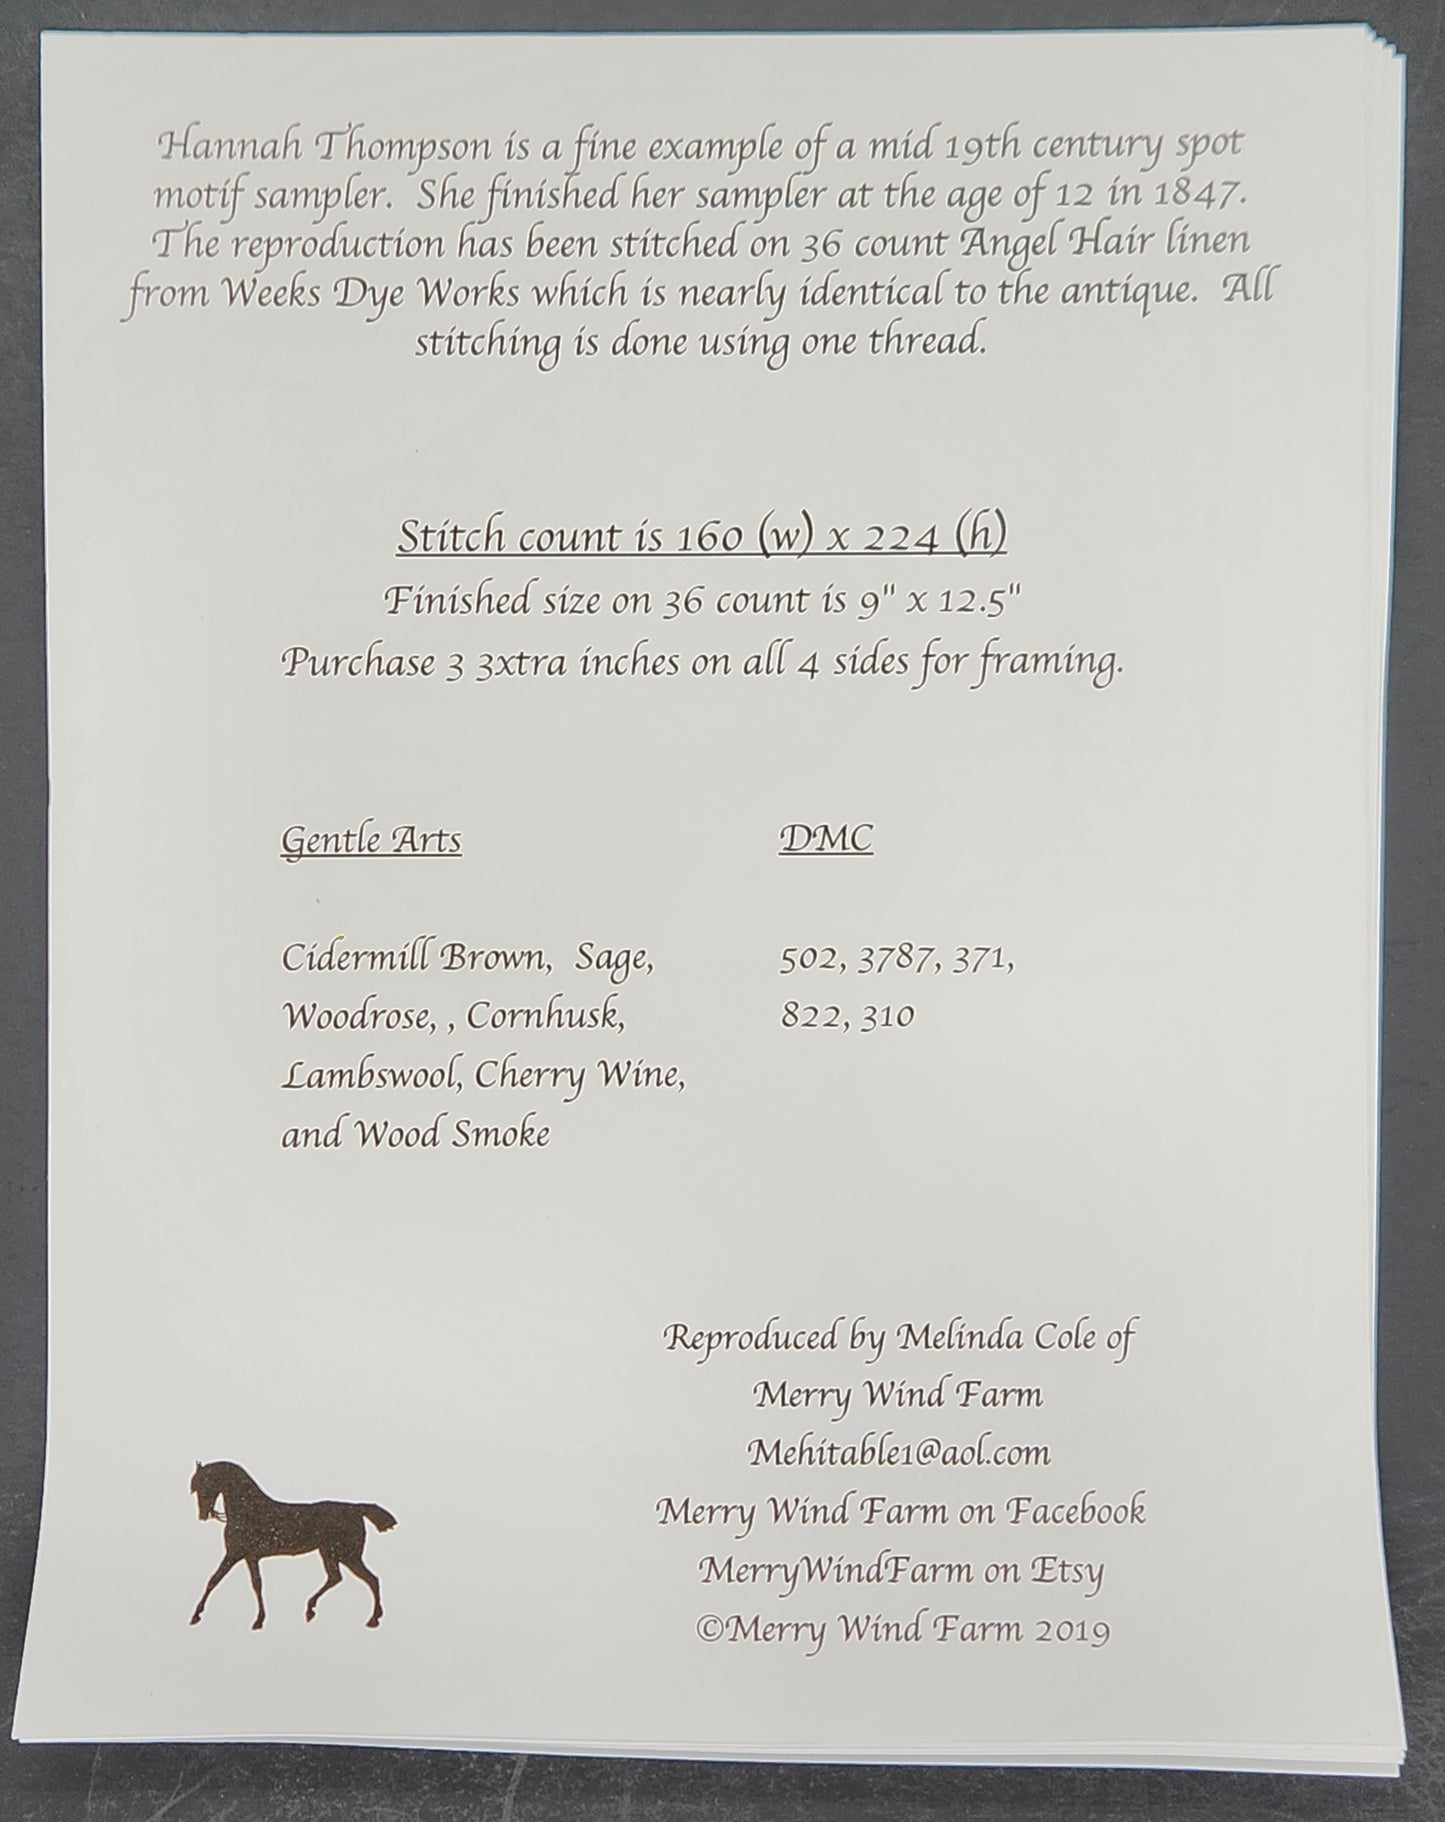 Hannah Thompson is a fine example of a mid 19th century spot
motif sampler. She finished her sampler at the age of 12 in 1847.
The reproduction has been stitched on 36 count Angel Hair linen
from Weeks Dye Works which is nearly identical to the antique. All
stitching is done using one thread.
Stitch count is 160 (w) x 224 (h)
Finished size on 36 count is 9" x 12.5"
Purchase 3 3xtra inches on all 4 sides for framing.
Gentle Arts
Cidermill Brown, Sage,
Woodrose, , Cornhusk,
Lambswool, Cherry Wine,
and Wood Smoke
DMC
502, 3787, 371,
822, 310
Reproduced by Melinda Cole of
Merry Wind Farm
Mehitable1@aol.com
Merry Wind Farm on Facebook
MerryWindFarm on Etsy
©Merry Wind Farm 2019